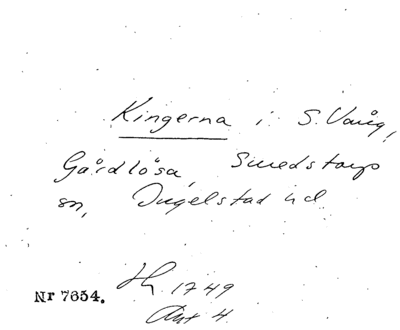 Kingerna i S. Vång,
Gårdlösa, Smedstorps
sn, Ingelstad hd
Nr 7654. 1749
Akt 4